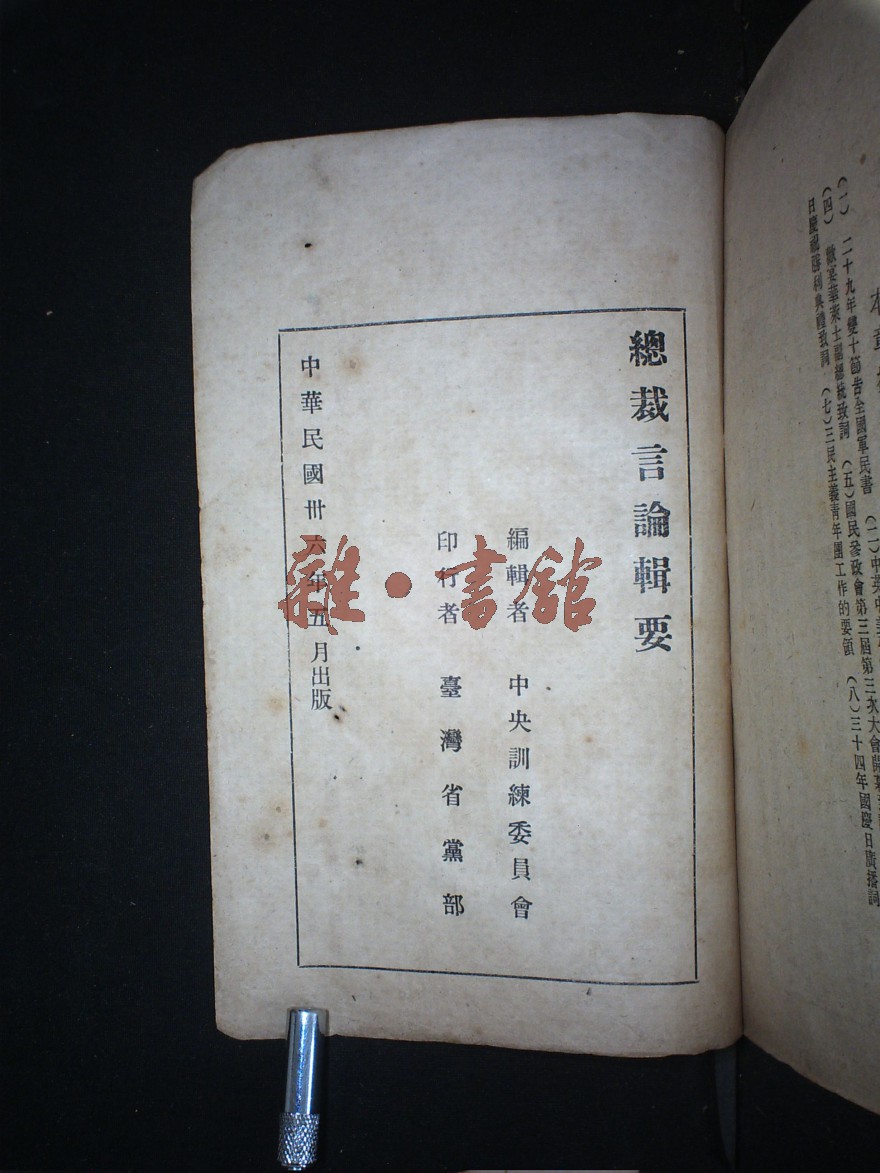 本章
(一) 二十九年雙十節告全國軍民書 (二)中英中美
(四) 歡宴華萊士副總統致詞 (五)國民參政會第三屆第三次大會開幕
日慶祝勝利典禮致詞 (七)三民主義青年團工作的要領 (八)三十四年國慶日廣播詞
總裁言論輯要
編輯者 中央訓練委員會
印行者 臺灣省黨部
中華民國卅六年五月出版
雜·書館